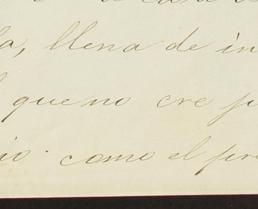 la, llena de in
que no cre p
io. como el pro